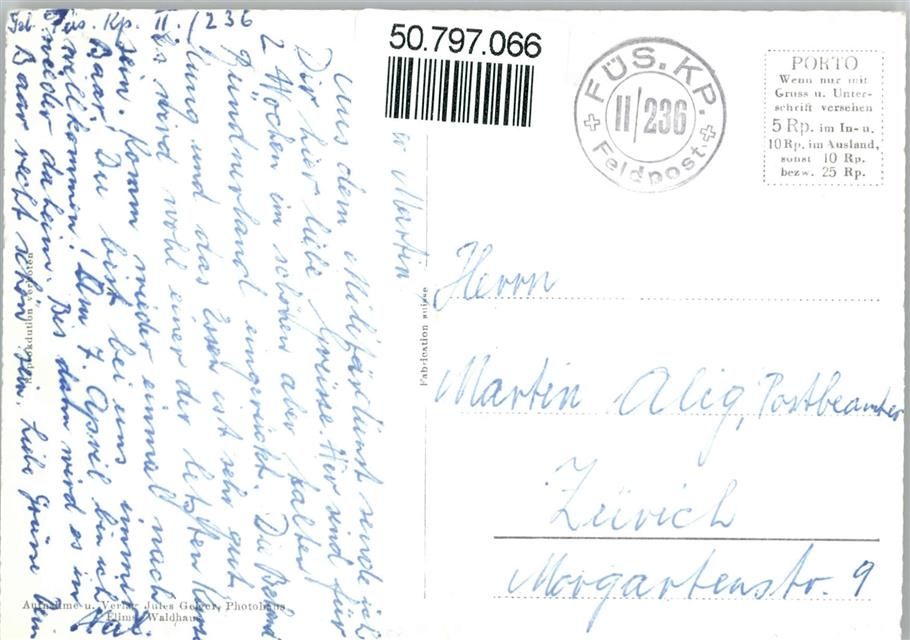 Füs. Kp. II./236
50.797.066
FÜS. KP.
II/236
Feldpost
PORTO
Wenn nur mit
Gruss u. Unter-
schrift versehen
5 Rp. im In- u.
10 Rp. im Ausland,
sonst 10 Rp.
bezw. 25 Rp.
Aus dem Militärdienst sende ich
Dir hier liebe Grüsse. Wir sind für
2 Wochen im schönen aber kalten
Bündnerland eingerückt. Die
und das Essen ist sehr gut.
Es wird wohl einer der letzten
sein. Komm wieder einmal nach
Baar! Du bist bei uns immer
willkommen! Am 7. April bin ich
wieder daheim. Bis dann wird es in
Baar recht schön sein. Liebe Grüsse
Martin
Herrn
Martin Alig, Postbeamter
Zürich
Morgartenstr. 9
Fabrication suisse
Reproduktion verboten
Aufnahme u. Verlag Jules Geiger, Photohaus
Flims-Waldhaus